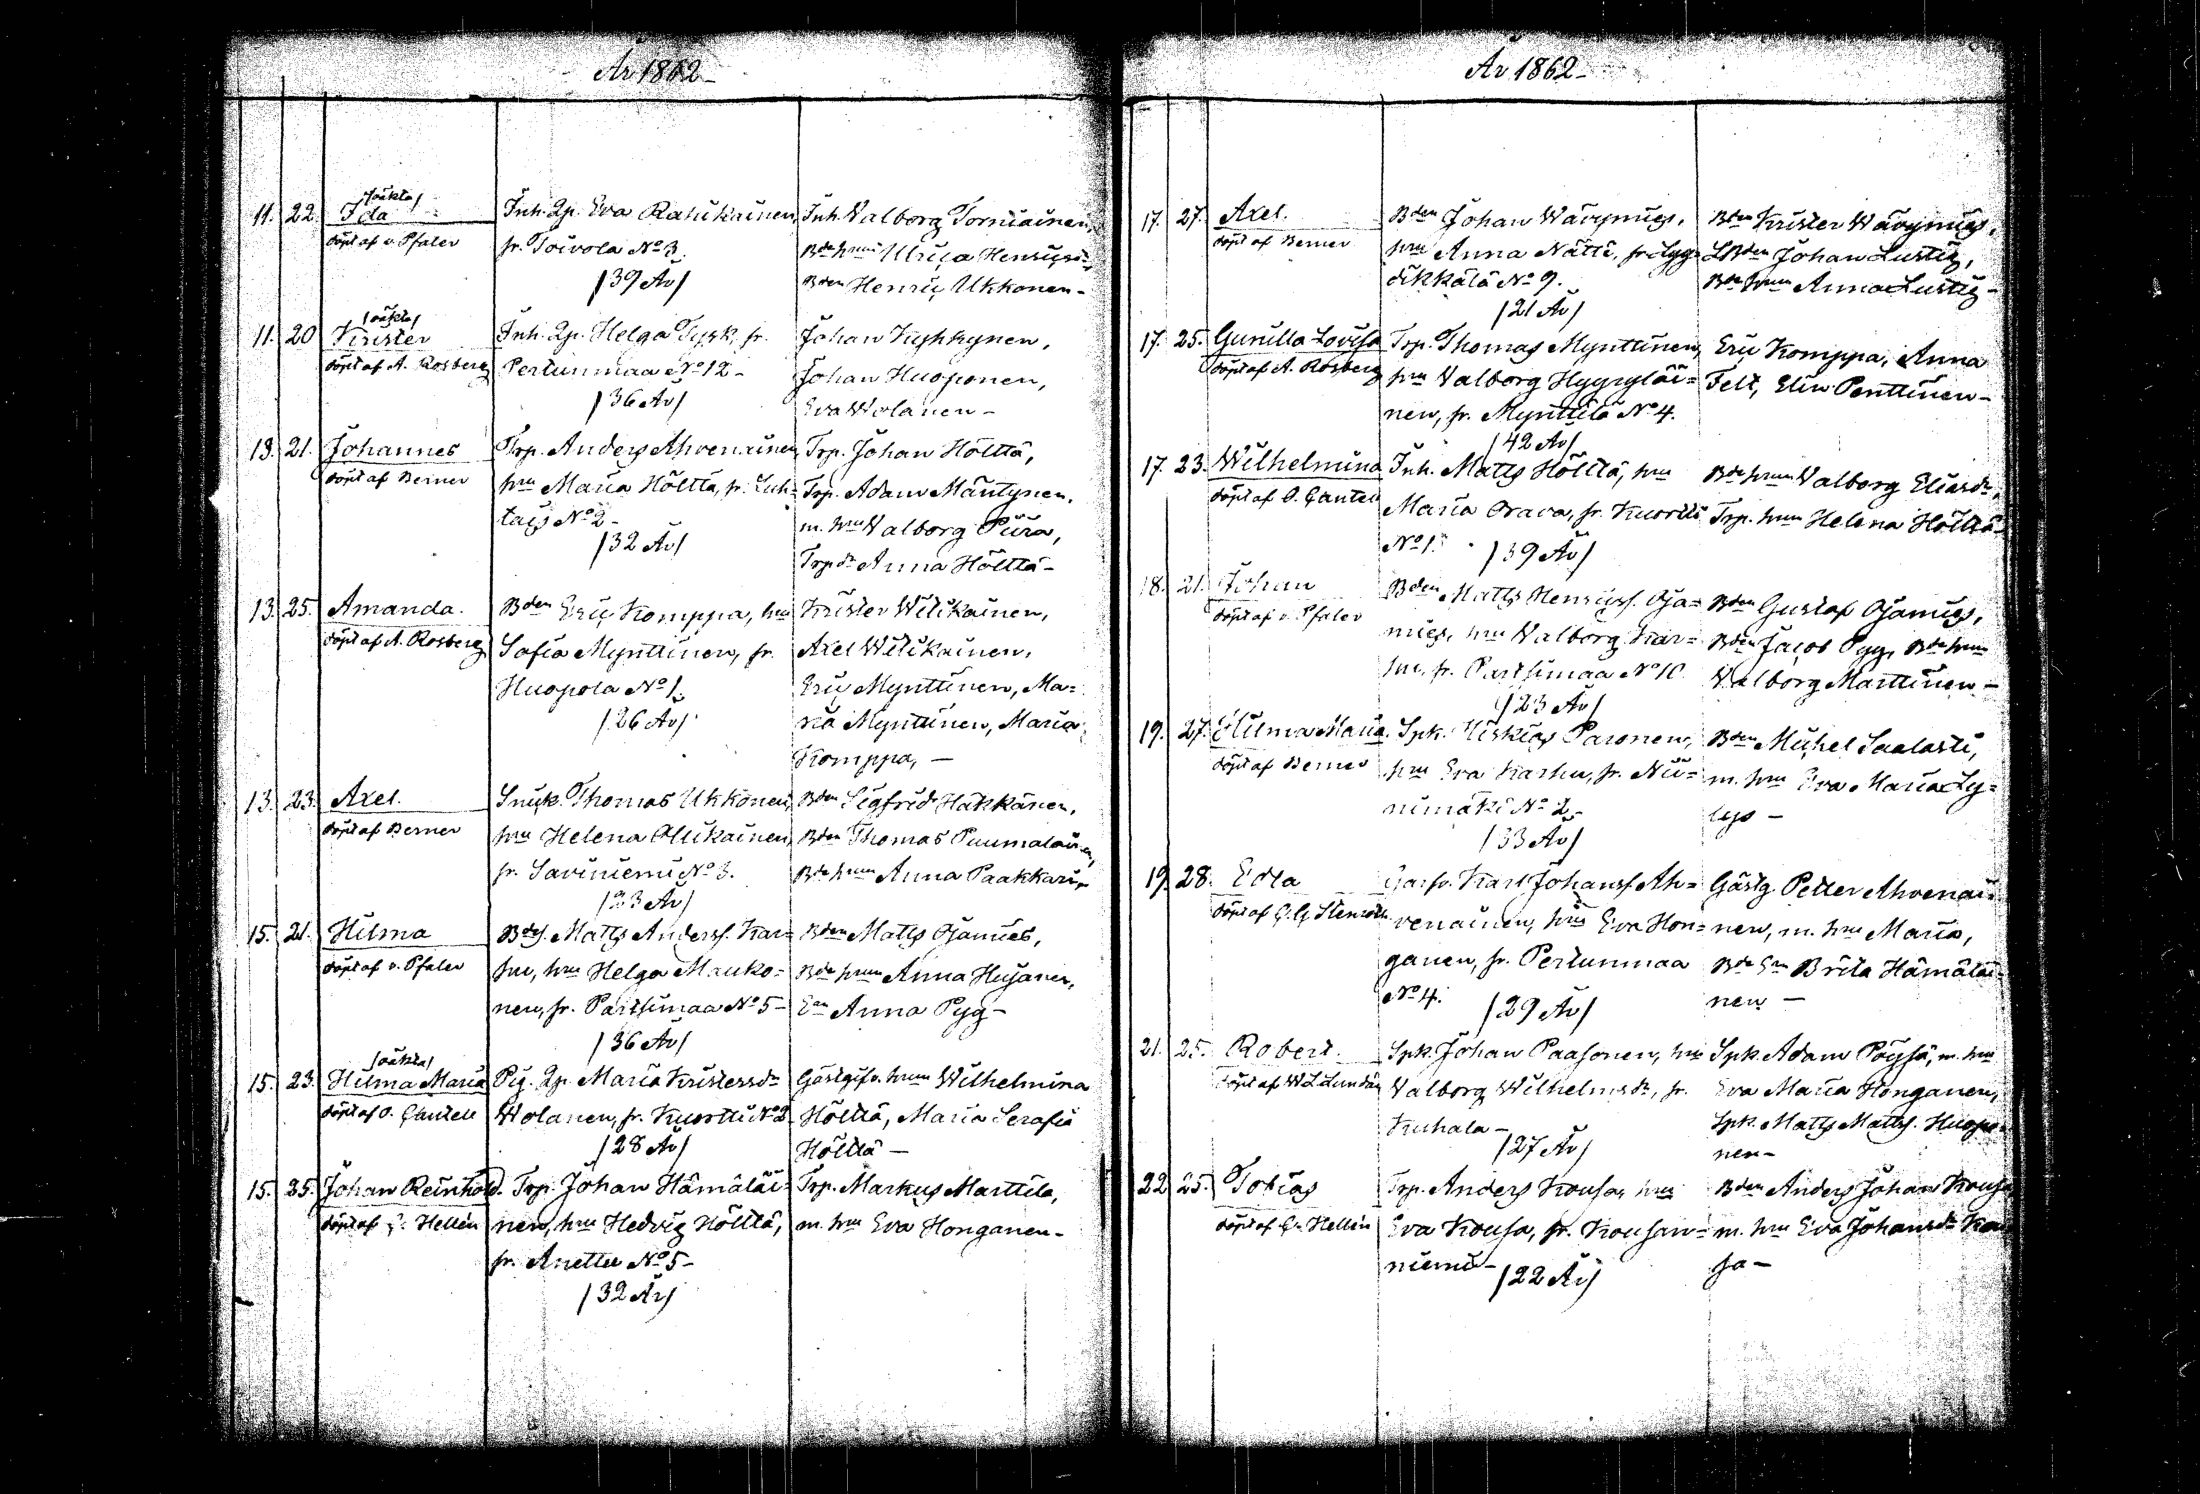 År 1862-
11. 22. /oäkta/
Ida
döpt af v. Pfaler
Inh. Qp. Eva Ratukainen,
fr. Toivola No 3.
/39 År/
Inh. Valborg Torniainen,
Bdehrnu Ulrica Henricsdr,
Bden Henric Ukkonen-
11. 20 /oäkta/
Krister
döpt af A. Rosberg
Inh. Qp. Helga Tysk, fr.
Pertunmaa No 12-
/36 År/
Johan Kyhkynen,
Johan Huoponen,
Eva Wolanen-
13. 21. Johannes
döpt af Berner
Trp. Anders Ahvenainen,
hru Maria Hölttä, fr. Luh-
tais No 2-
/32 År/
Trp. Johan Hölttä,
Trp. Adam Mäntynen,
m. hru Valborg Piira,
Trp.dr Anna Hölttä-
13. 25. Amanda.
döpt af A. Rosberg
Bden Eric Komppa, hru
Sofia Mynttinen, fr.
Huopola No 1.
/26 År/
Krister Wilikainen,
Axel Wilikainen,
Eric Mynttinen, Ma=
ria Mynttinen, Maria
Komppa, -
13. 23. Axel.
döpt af Berner
Snick. Thomas Ukkonen,
hru Helena Ollikainen,
fr. Saviniemi No 3.
/33 År/
Bden Sigfrid Häkkänen,
Bden Thomas Puumalainen,
Bdehrnu Anna Paakkari-
15. 21. Hilma
döpt af v. Pfaler
Bdes. Matts Anderss. Kar=
hu, hru Helga Mauko=
nen, fr. Partsimaa No 5-
/36 År/
Bden Matts Ojanies,
Bdehrnu Anna Hujanen,
En Anna Pyg-
15. 23. /oäkta/
Hilma Maria
döpt af O. Gantell
Pig. Qp. Maria Kristersdr
Wolanen, fr. Kuortti No 2
/28 År/
Gästgifv. hrnu Wilhelmina
Hölttä, Maria Serafia
Hölttä -
15. 25. Johan Reinhold.
döpt af G. Hellén
Trp. Johan Hämäläi=
nen, hru Hedvig Hölttä,
fr. Anettu No 5-
/32 År/
Trp. Markus Marttila,
m. hru Eva Honganen-
År 1862-
17. 27. Axel.
döpt af Berner
Bden Johan Wärynies,
hru Anna Nätti, fr. Lyy=
dikkälä No 9.
/21 År/
Bden Krister Wärynies,
LBden Johan Lustig,
Bdehrnu Anna Lustig-
17. 25. Gunilla Lovisa
döpt af A. Rosberg
Trp. Thomas Mynttinen,
hru Valborg Hyyryläi=
nen, fr. Mynttilä No 4.
/42 År/
Eric Komppa, Anna
Felt, Elin Penttinen-
17. 23. Wilhelmina
döpt af O. Gantell
Inh. Matts Hölttä, hru
Maria Orava, fr. Kuortti
No 1. /39 År/
Bdehrnu Valborg Eliasdr,
Trp. hrnu Helena Hölttä-
18. 21. Johan
döpt af v. Pfaler
Bden Matts Henricss. Oja=
nies, hru Valborg Kar=
hu, fr. Partsimaa No 10
/23 År/
Bden Gustaf Ojanies,
Bden Jacob Pyg, Bdehrnu
Valborg Marttinen-
19. 27. Hilma Maria.
döpt af Berner
Spk. Hiskias Paronen,
hru Eva Karhu, fr. Nii=
nimäki No 2-
/33 År/
Bden Michel Saalasti,
m. hru Eva Maria Ly=
lys -
19. 28. Edla
döpt af G. G. Stenroth
Karl Johanss. Ah=
venainen, hru Eva Hon=
ganen, fr. Pertunmaa
No 4. /29 År/
Gästg. Petter Ahvenai=
nen, m. hru Maria,
Bde En Brita Hämäläi=
nen -
21. 25. Robert.
döpt af W. L. Lundén
Spk. Johan Paasonen, hru
Valborg Wilhelmsdr, fr.
Kuhala-
/27 År/
Spk. Adam Pöyhä, m. hru
Eva Maria Honganen,
Spk. Matts Matts. Huopo=
nen-
22. 25. Tobias
döpt af G. Hellén
Trp. Anders Kousa, hru
Eva Kousa, fr. Kousan=
niemi- /22 År/
Bden Anders Johan Kousa
m. hru Eva Johansdr Kou
sa-